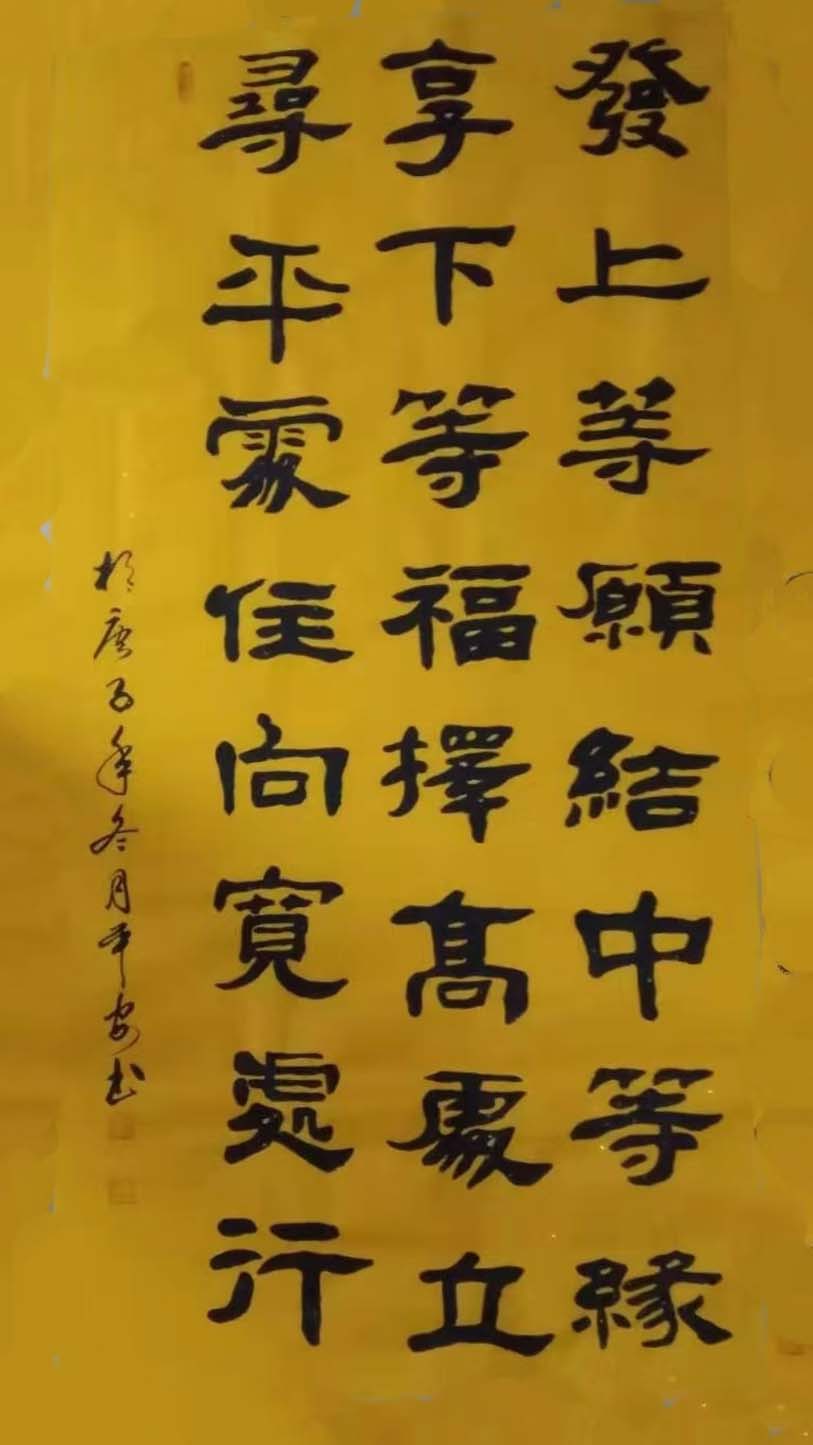 發上等願結中等緣
享下等福擇高處立
尋平處住向寬處行
於庚子年冬月平安書